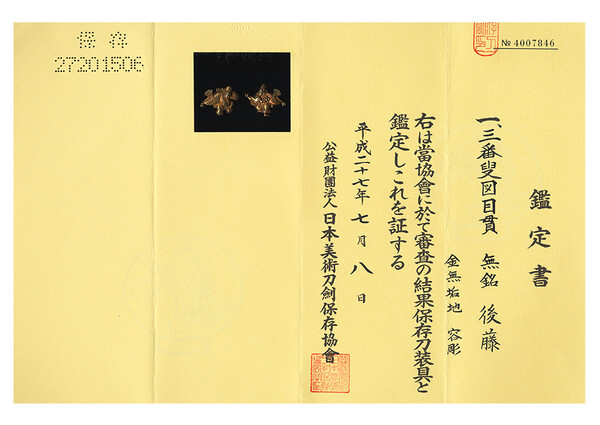 № 4007846
鑑定書
一、三番叟図目貫 無銘 後藤
金無垢地 容彫
右は當協會に於て審査の結果保存刀装具と
鑑定しこれを証する
平成二十七年 七月 八日
公益財團法人 日本美術刀劍保存協會
保存
27201506